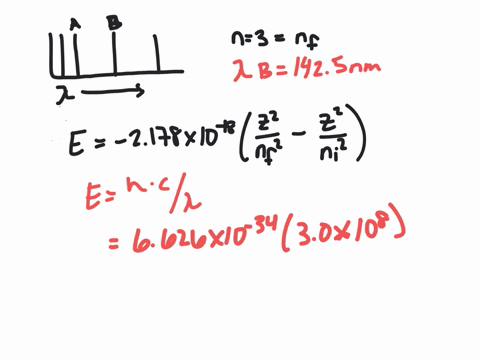 A B
λ →
n=3 = nf
λ B = 142.5nm
E = -2.178×10⁻¹⁸ (Z²/nf² - Z²/ni²)
E = h·c/λ
= 6.626×10⁻³⁴ (3.0×10⁸)